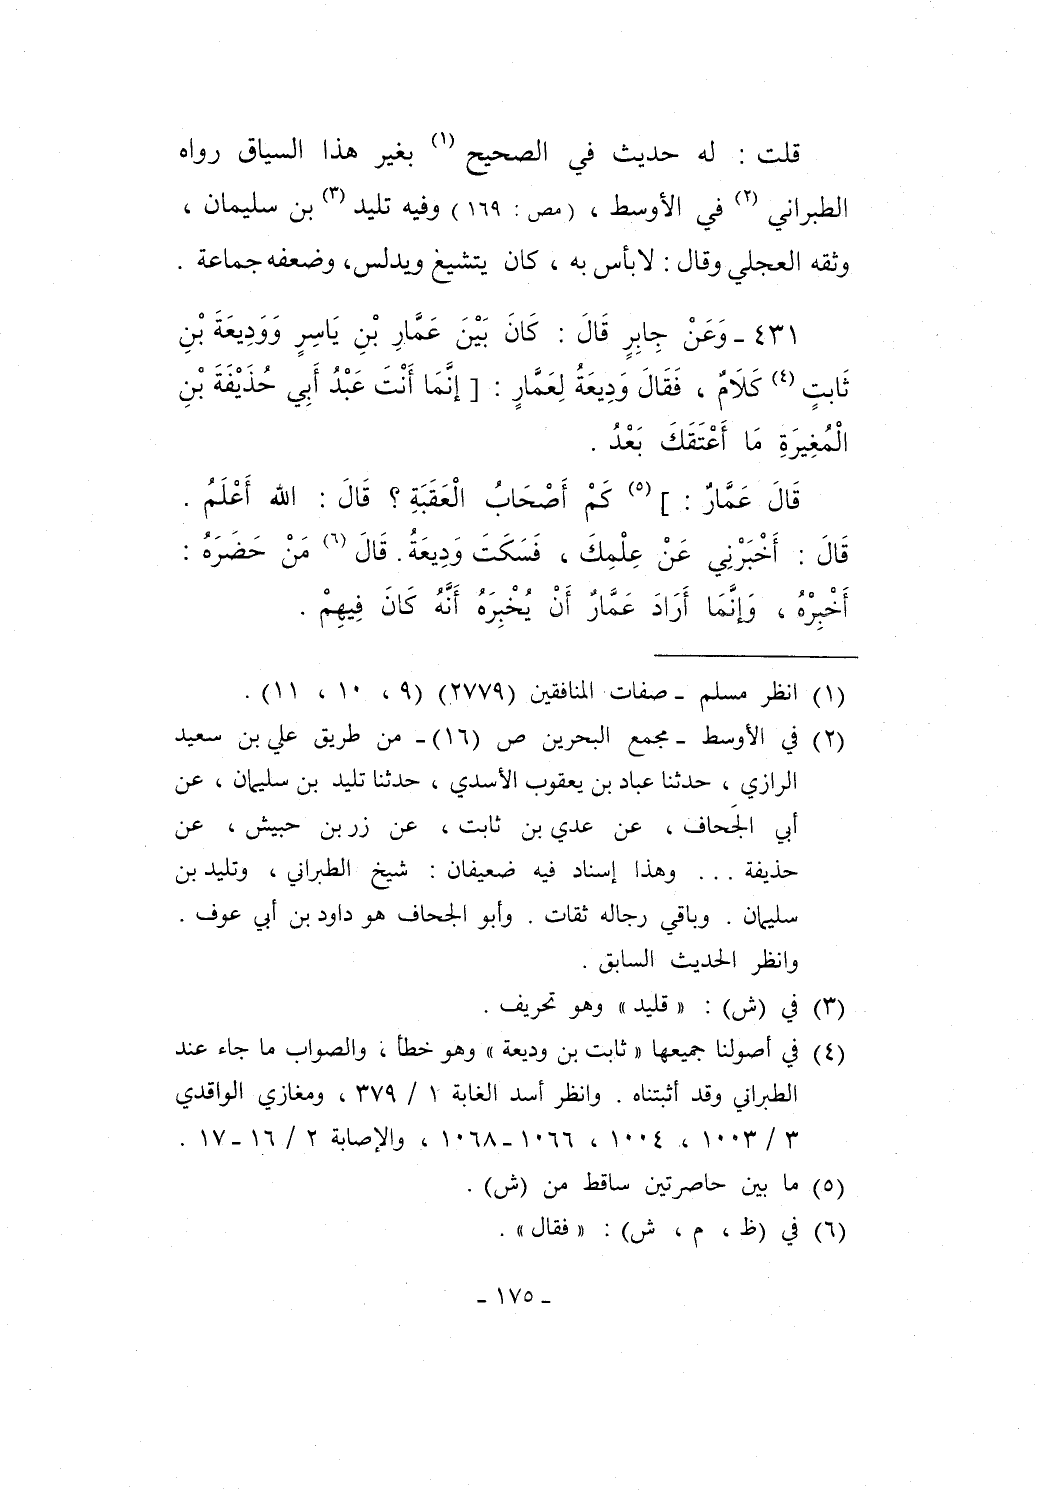 قلت : له حديث في الصحيح (١) بغير هذا السياق رواه
الطبراني (٢) في الأوسط ، (مص : ١٦٩ ) وفيه تليد (٣) بن سليمان ،
وثقه العجلي وقال : لابأس به ، كان يتشيغ ويدلس، وضعفه جماعة .
٤٣١ ـ وَعَنْ جِابِرٍ قَالَ : كَانَ بَيْنَ عَمَّارِ بْنِ يَاسِرٍ وَوَدِيعَةَ بْنِ
ثَابتٍ (٤) كَلَامٌ ، فَقَالَ وَدِيعَةُ لِعَمَّارٍ : [ إنَّمَا أَنْتَ عَبْدُ أَبِي حُذَيْفَةَ بْنِ
الْمُغِيرَةِ مَا أَعْتَقَكَ بَعْدُ .
قَالَ عَمَّارٌ : ] (٥) كَمْ أَصْحَابُ الْعَقَبَةِ ؟ قَالَ : الله أَعْلَمُ .
قَالَ : أَخْبَرْنِي عَنْ عِلْمِكَ ، فَسَكَتَ وَدِيعَةُ. قَالَ (٦) مَنْ حَضَرَهُ :
أَخْبِرْهُ ، وَإِنَّمَا أَرَادَ عَمَّارٌ أَنْ يُخْبِرَهُ أَنَّهُ كَانَ فِيهِمْ .
(١) انظر مسلم ـ صفات المنافقين (٢٧٧٩) (٩ ، ١٠ ، ١١) .
(٢) في الأوسط ـ مجمع البحرين ص (١٦) ـ من طريق علي بن سعيد
الرازي ، حدثنا عباد بن يعقوب الأسدي ، حدثنا تليد بن سليمان ، عن
أبي الجَحاف ، عن عدي بن ثابت ، عن زر بن حبيش ، عن
حذيفة ... وهذا إسناد فيه ضعيفان : شيخ الطبراني ، وتليد بن
سليمان . وباقي رجاله ثقات . وأبو الجحاف هو داود بن أبي عوف .
وانظر الحديث السابق .
(٣) في (ش) : « قليد » وهو تحريف .
(٤) في أصولنا جميعها « ثابت بن وديعة » وهو خطأ ، والصواب ما جاء عند
الطبراني وقد أثبتناه . وانظر أسد الغابة ١ / ٣٧٩ ، ومغازي الواقدي
٣ / ١٠٠٣ ، ١٠٠٤ ، ١٠٦٦ ـ ١٠٦٨ ، والإصابة ٢ / ١٦ ـ ١٧ .
(٥) ما بين حاصرتين ساقط من (ش) .
(٦) في (ظ ، م ، ش) : « فقال » .
ـ ١٧٥ ـ